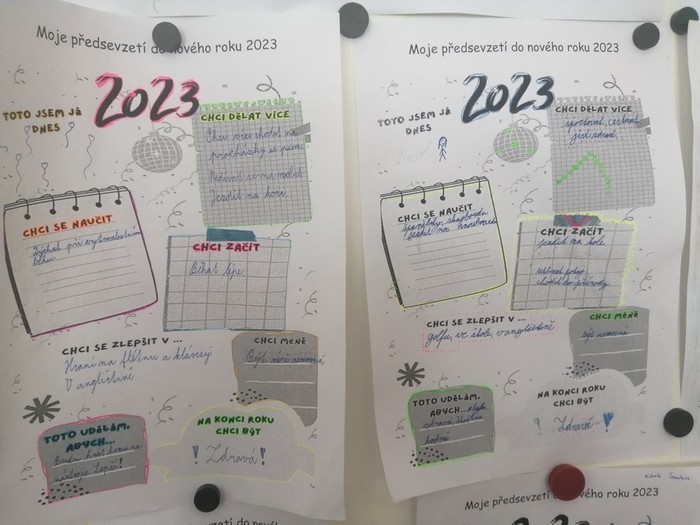 Moje předsevzetí do nového roku 2023
2023
TOTO JSEM JÁ
DNES
CHCI DĚLAT VÍCE
Chci více chodit na
procházky se psem
Jezdit na koni
CHCI SE NAUČIT
CHCI ZAČÍT
Běhat lépe
CHCI SE ZLEPŠIT V ...
Hraní na flétnu a klávesy
V angličtině
CHCI MÉNĚ
Být méně nemocná
TOTO UDĚLÁM,
ABYCH...
Budu hrát
lepší!
NA KONCI ROKU
CHCI BÝT
! Zdravá !
Moje předsevzetí do nového roku 2023
2023
TOTO JSEM JÁ
DNES
CHCI DĚLAT VÍCE
sportovat, cestovat,
jíst zdravě
CHCI SE NAUČIT
španělsky,
jezdit na
CHCI ZAČÍT
jezdit na kole
chodit do přírody
CHCI SE ZLEPŠIT V ...
golfu, ve škole, v angličtině
CHCI MÉNĚ
být nemocná
TOTO UDĚLÁM,
ABYCH... byla
zdravá, šťastná
hodná
NA KONCI ROKU
CHCI BÝT
! Zdravá !
Moje předsevzetí do nového roku 2023